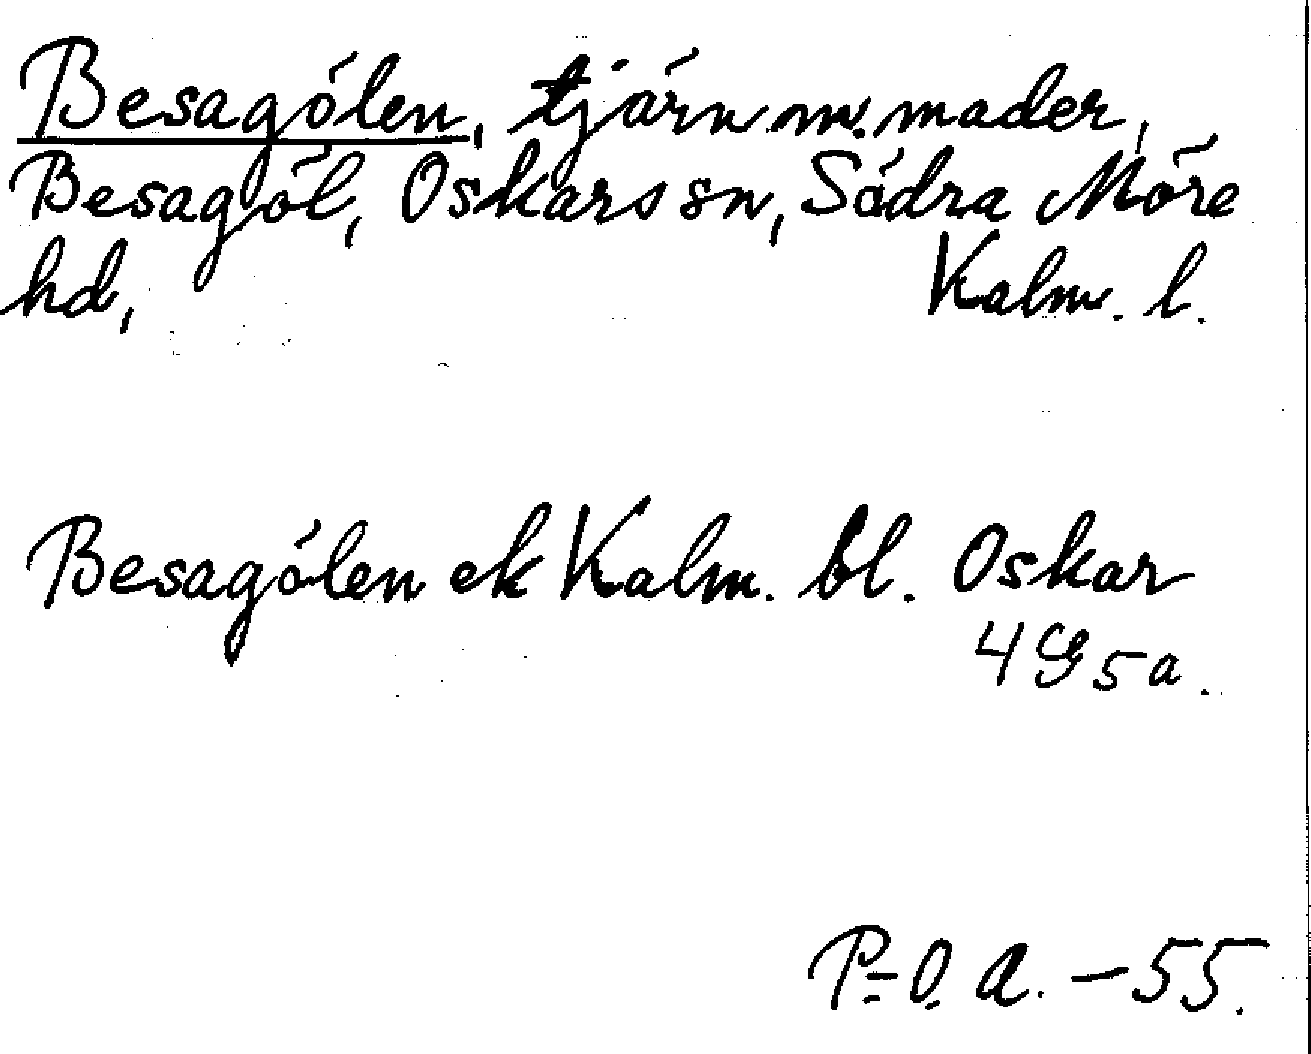 Besagölen, tjärn m. mader,
Besagöl, Oskars sn, Södra Möre
hd, Kalm. l.
Besagölen ek Kalm. bl. Oskar
4G5a.
P-O. A. - 55.